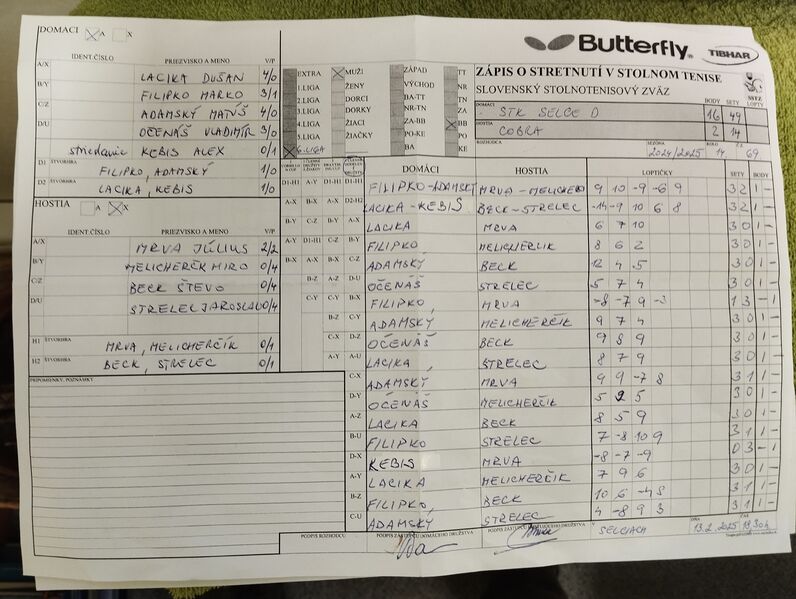 DOMACI A X
Butterfly
TIBHAR
IDENT.ČÍSLO PRIEZVISKO A MENO V/P
A/X LACIKA DUŠAN 4/0
B/Y FILIPKO MARKO 3/1
C/Z ADAMSKÝ MATÚŠ 4/0
D/U OČENÁŠ VLADIMÍR 3/0
striedanie KEBIS ALEX 0/1
D1 ŠTVORHRA FILIPKO, ADAMSKÝ 1/0
D2 ŠTVORHRA LACIKA, KEBIS 1/0
HOSTIA A X
IDENT.ČÍSLO PRIEZVISKO A MENO V/P
A/X MRVA JÚLIUS 2/2
B/Y MELICHERČK MIRO 0/4
C/Z BECK ŠTEVO 0/4
D/U STRELEC JAROSLAV 0/4
H1 ŠTVORHRA MRVA, MELICHERČÍK 0/1
H2 ŠTVORHRA BECK, STRELEC 0/1
PRIPOMIENKY, POZNÁMKY
EXTRA MUŽI ZÁPAD TT
1.LIGA ŽENY VÝCHOD NR
2.LIGA DORCI BA-TT TN
3.LIGA DORKY NR-TN ZA
4.LIGA ŽIACI ZA-BB BB
5.LIGA ŽIAČKY PO-KE PO
6.LIGA BA KE
ZÁPIS O STRETNUTÍ V STOLNOM TENISE
SLOVENSKÝ STOLNOTENISOVÝ ZVÄZ
DOMÁCI STK SELCE D BODY 16 SETY 49 LOPTY
HOSTIA COBRA 2 14
ROZHODCA SEZÓNA 2024/2025 KOLO 14 69
DOMÁCI HOSTIA LOPTIČKY SETY BODY
D1-H1 A-Y D1-H1 D1-H1 FILIPKO-ADAMSKÝ MRVA-MELICHERČ 9 10 -9 -6 9 3 2 1 -
A-X B-X A-X D2-H2 LACIKA-KEBIS BECK-STRELEC -14 -9 10 6 8 3 2 1 -
B-Y C-Z B-Y A-X LACIKA MRVA 6 7 10 3 0 1 -
A-Y D1-H1 C-Z B-Y FILIPKO MELICHERČÍK 8 6 2 3 0 1 -
B-X A-X B-X C-Z ADAMSKÝ BECK 12 4 5 3 0 1 -
B-Z A-Z D-U OČENÁŠ STRELEC 5 7 4 3 0 1 -
C-Y C-Y B-X FILIPKO MRVA -8 -7 9 -3 1 3 - 1
B-Z C-Y ADAMSKÝ MELICHERČÍK 9 7 4 3 0 1 -
C-X D-Z OČENÁŠ BECK 9 8 9 3 0 1 -
A-Y A-U LACIKA STRELEC 8 7 9 3 0 1 -
C-X ADAMSKÝ MRVA 9 9 -7 8 3 1 1 -
D-Y OČENÁŠ MELICHERČÍK 5 2 5 3 0 1 -
A-Z LACIKA BECK 8 5 9 3 0 1 -
B-U FILIPKO STRELEC 7 -8 10 9 3 1 1 -
D-X KEBIS MRVA -8 -7 -9 0 3 - 1
A-Y LACIKA MELICHERČÍK 7 9 6 3 0 1 -
B-Z FILIPKO BECK 10 6 -4 8 3 1 1 -
C-U ADAMSKÝ STRELEC 4 -8 9 3 3 1 1 -
PODPIS ROZHODCU PODPIS ZÁSTUPCU DOMÁCEHO DRUŽSTVA V SELCIACH DŇA 13.2.2025 ČAS